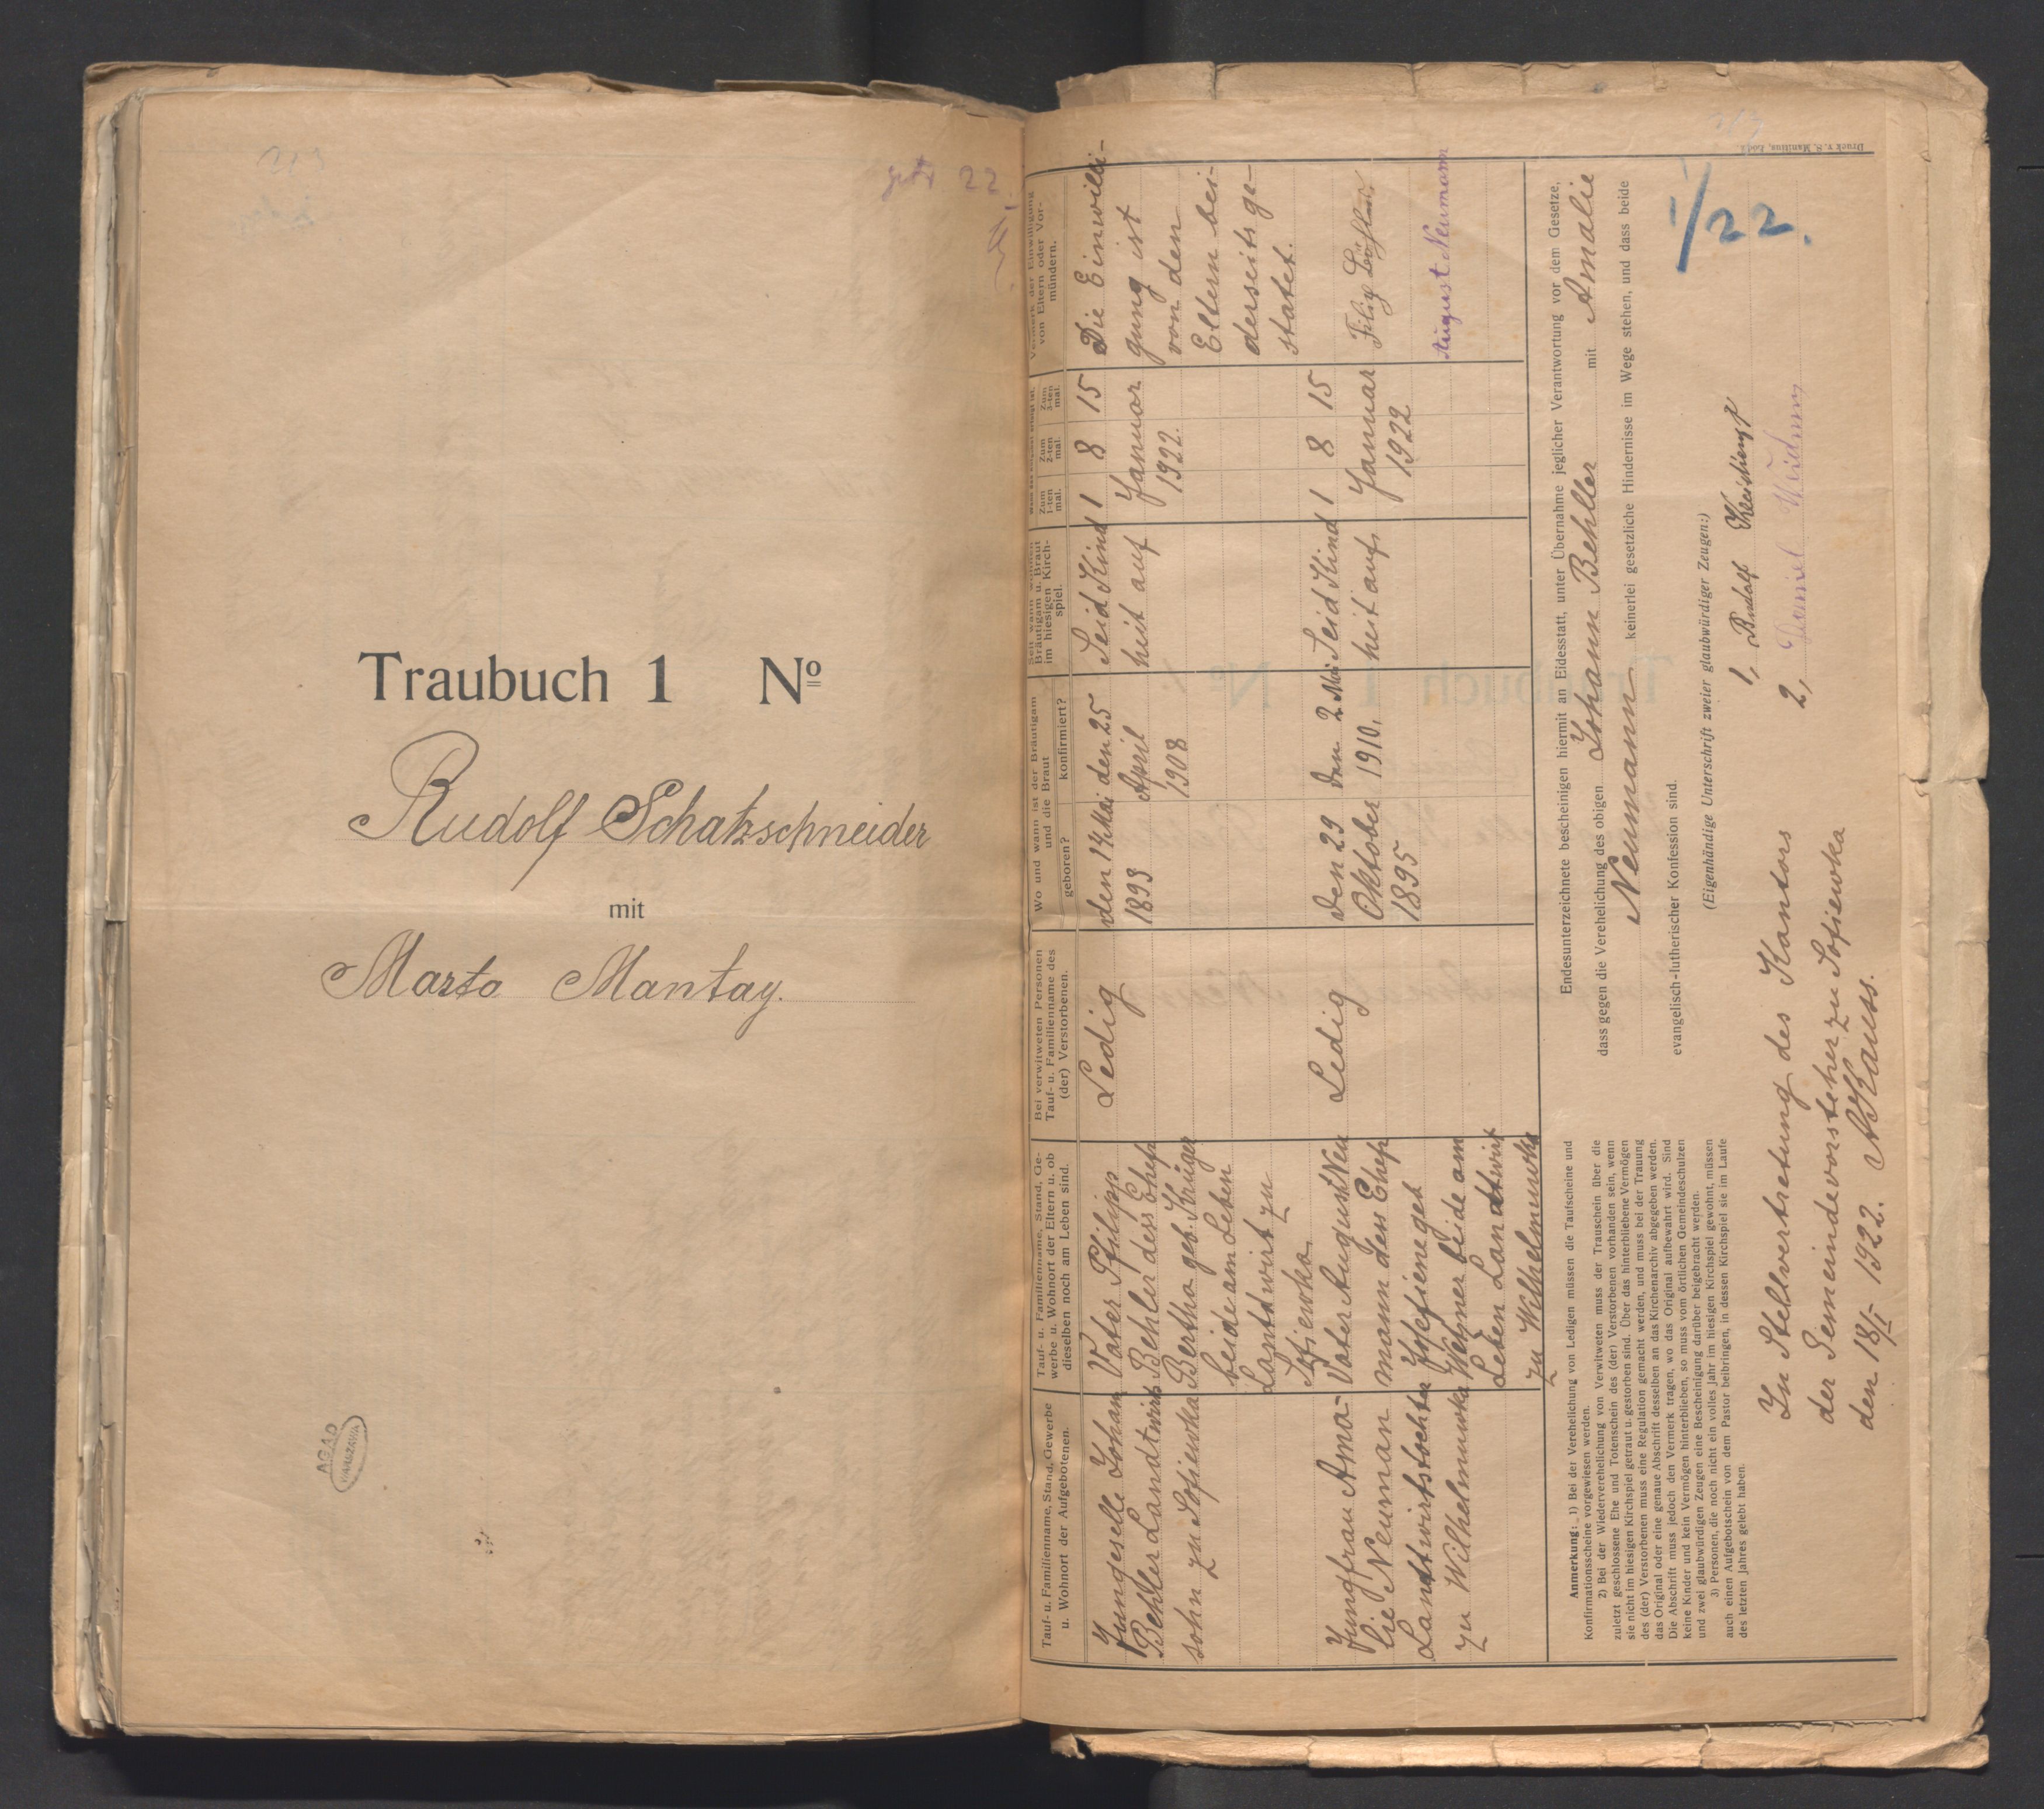 22.
Traubuch 1 Nº
Rudolf Schatzschneider
mit
Marta Mantay.
AGAD
WARSZAWA
Druck v. S. Manitius, Łódź.
1/22.
Tauf- u. Familienname, Stand, Gewerbe
u. Wohnort der Aufgebotenen.
Jungeselle Johann
Behler Landtwirts
sohn zu Sofiewka
Jungfrau Ama-
lie Neuman
Landtwirtstochter
zu Wilhelmuwka
Tauf- u. Familienname, Stand, Ge-
werbe u. Wohnort der Eltern u. ob
dieselben noch am Leben sind.
Vater Philipp
Behler dess Ehefr
Bertha geb. Krüger
beide am Leben
Landtwirt zu
Sofiewka.
Vater August Neu
mann dess Ehefr
Josefiene geb
Wegner beide am
Leben Landtwirt
zu Wilhelmuwka
Bei verwitweten Personen
Tauf- u. Familienname des
(der) Verstorbenen.
Ledig
Ledig
Wo und wann ist der Bräutigam
und die Braut
geboren?
konfirmiert?
den 14 Mai
1893
den 25
April
1908
den 29
Oktober
1895
den 2 Mai
1910.
Seit wann wohnen
Bräutigam u. Braut
im hiesigen Kirch-
spiel.
Seid Kind
heit auf
Seid Kind
heit auf
Zum
1-ten
mal.
Zum
2-ten
mal.
Zum
3-ten
mal.
1 8 15
Januar
1922.
1 8 15
Januar
1922
Vermerk der Einwilligung
von Eltern oder Vor-
mündern.
Die Einwilli-
gung ist
von den
Eltern bei-
derseits ge-
statet.
August Neumann
Endesunterzeichnete bescheinigen hiermit an Eidesstatt, unter Übernahme jeglicher Verantwortung vor dem Gesetze,
dass gegen die Verehelichung des obigen Johann Behller mit Amalie
Neumann keinerlei gesetzliche Hindernisse im Wege stehen, und dass beide
evangelisch-lutherischer Konfession sind.
(Eigenhändige Unterschrift zweier glaubwürdiger Zeugen:)
1, Rudolf
2, Daniel
Anmerkung: 1) Bei der Verehelichung von Ledigen müssen die Taufscheine und
Konfirmationsscheine vorgewiesen werden.
2) Bei der Wiederverehelichung von Verwitweten muss der Trauschein über die
zuletzt geschlossene Ehe und Totenschein des (der) Verstorbenen vorhanden sein, wenn
sie nicht im hiesigen Kirchspiel getraut u. gestorben sind. Über das hinterbliebene Vermögen
des (der) Verstorbenen muss eine Regulation gemacht werden, und muss bei der Trauung
das Original oder eine genaue Abschrift desselben an das Kirchenarchiv abgegeben werden.
Die Abschrift muss jedoch den Vermerk tragen, wo das Original aufbewahrt wird. Sind
keine Kinder und kein Vermögen hinterblieben, so muss vom örtlichen Gemeindeschulzen
und zwei glaubwürdigen Zeugen eine Bescheinigung darüber beigebracht werden.
3) Personen, die noch nicht ein volles Jahr im hiesigen Kirchspiel gewohnt, müssen
auch einen Aufgebotschein von dem Pastor beibringen, in dessen Kirchspiel sie im Laufe
des letzten Jahres gelebt haben.
In Stelvertretung des Kantors
der Gemeindevorsteher zu Sofiewka
den 18/I 1922. A Krauss.